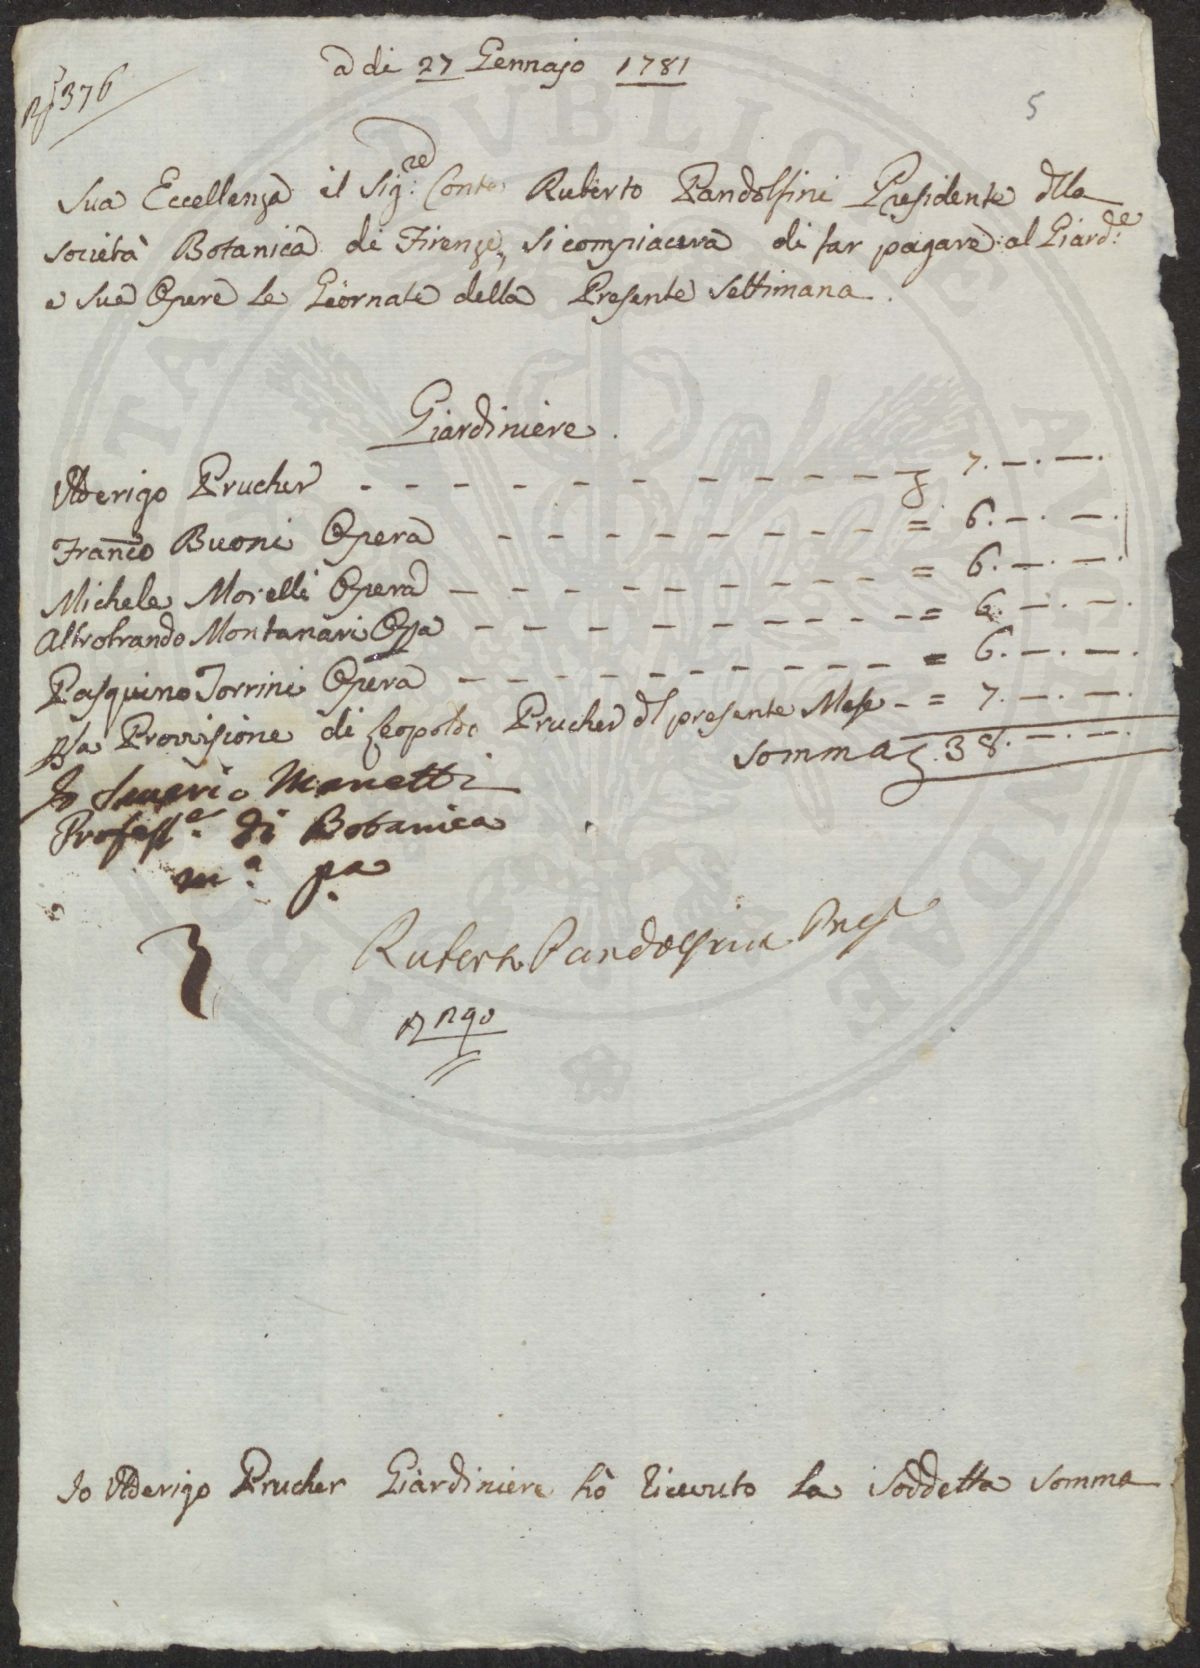 a di 27 Gennajo 1781
376
5
Sua Eccellenza il Sig:re Conte Ruberto Pandolfini Presidente dlla
Società Botanica di Firenze, si compiacerà di far pagare al Giard:e
e sue Opere le Giornate della Presente Settimana.
Giardiniere.
Uderigo Prucher - - - - - - - - - - - - 7. —. —.
Franco Buoni Opera - - - - - - - - - - = 6. —. —.
Michele Morelli Opera - - - - - - - - - - = 6. —. —.
Altrobrando Montanari Opa - - - - - - - - - - = 6. —. —.
Pasquino Torrini Opera - - - - - - - - - - = 6. —. —.
p la Provisione di Leopoldo Prucher dl presente Mese - = 7. —. —.
Somma 38. —. —.
Io Saverio Manetti
Profess:e di Botanica
m:a p:a
Ruberto Pandolfini Pres
Io Uderigo Prucher Giardiniere hò riceuuto la Soddetta Somma
PVBLICAE